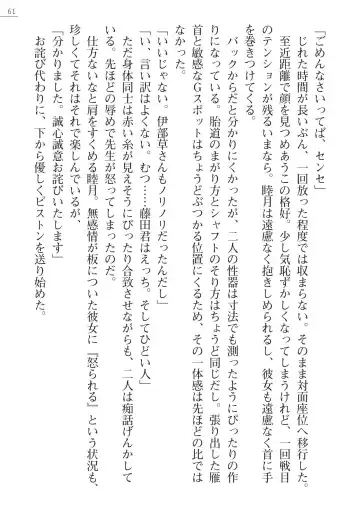 61
「ごめんなさいってば、センセ」
じれた時間が長いぶん、一回放った程度では収まらない。そのまま対面座位へ移行した。
至近距離で顔を見つめあうこの格好。少し気恥ずかしくなってしまうけれど、一回戦目
のテンションが残るいまなら。睦月は遠慮なく抱きしめられるし、彼女も遠慮なく首に手
を巻きつけてくる。
バックからだと分かりにくかったが、二人の性器は寸法でも測ったようにぴったりの作
りになっている。胎道のまがり方とシャフトのそり方はちょうど同じだし。張り出した雁
首と敏感なGスポットはちょうどぶつかる位置にくるため、その一体感は先ほどの比では
なかった。
「いいじゃない。伊部草さんもノリノリだったんだし」
「い、言い訳はよくない。むつ……藤田君はえっち。そしてひどい人」
ただ身体同士は赤い糸が見えそうにぴったり合致させながらも、二人は痴話げんかして
いる。先ほどの辱めで先生が怒ってしまったのだ。
仕方ないなと肩をすくめる睦月。無感情が板についた彼女に『怒られる』という状況も、
珍しくてそれはそれで楽しんでいるが、
「分かりました。誠心誠意お詫びいたします」
お詫び代わりに、下から優しくピストンを送り始めた。